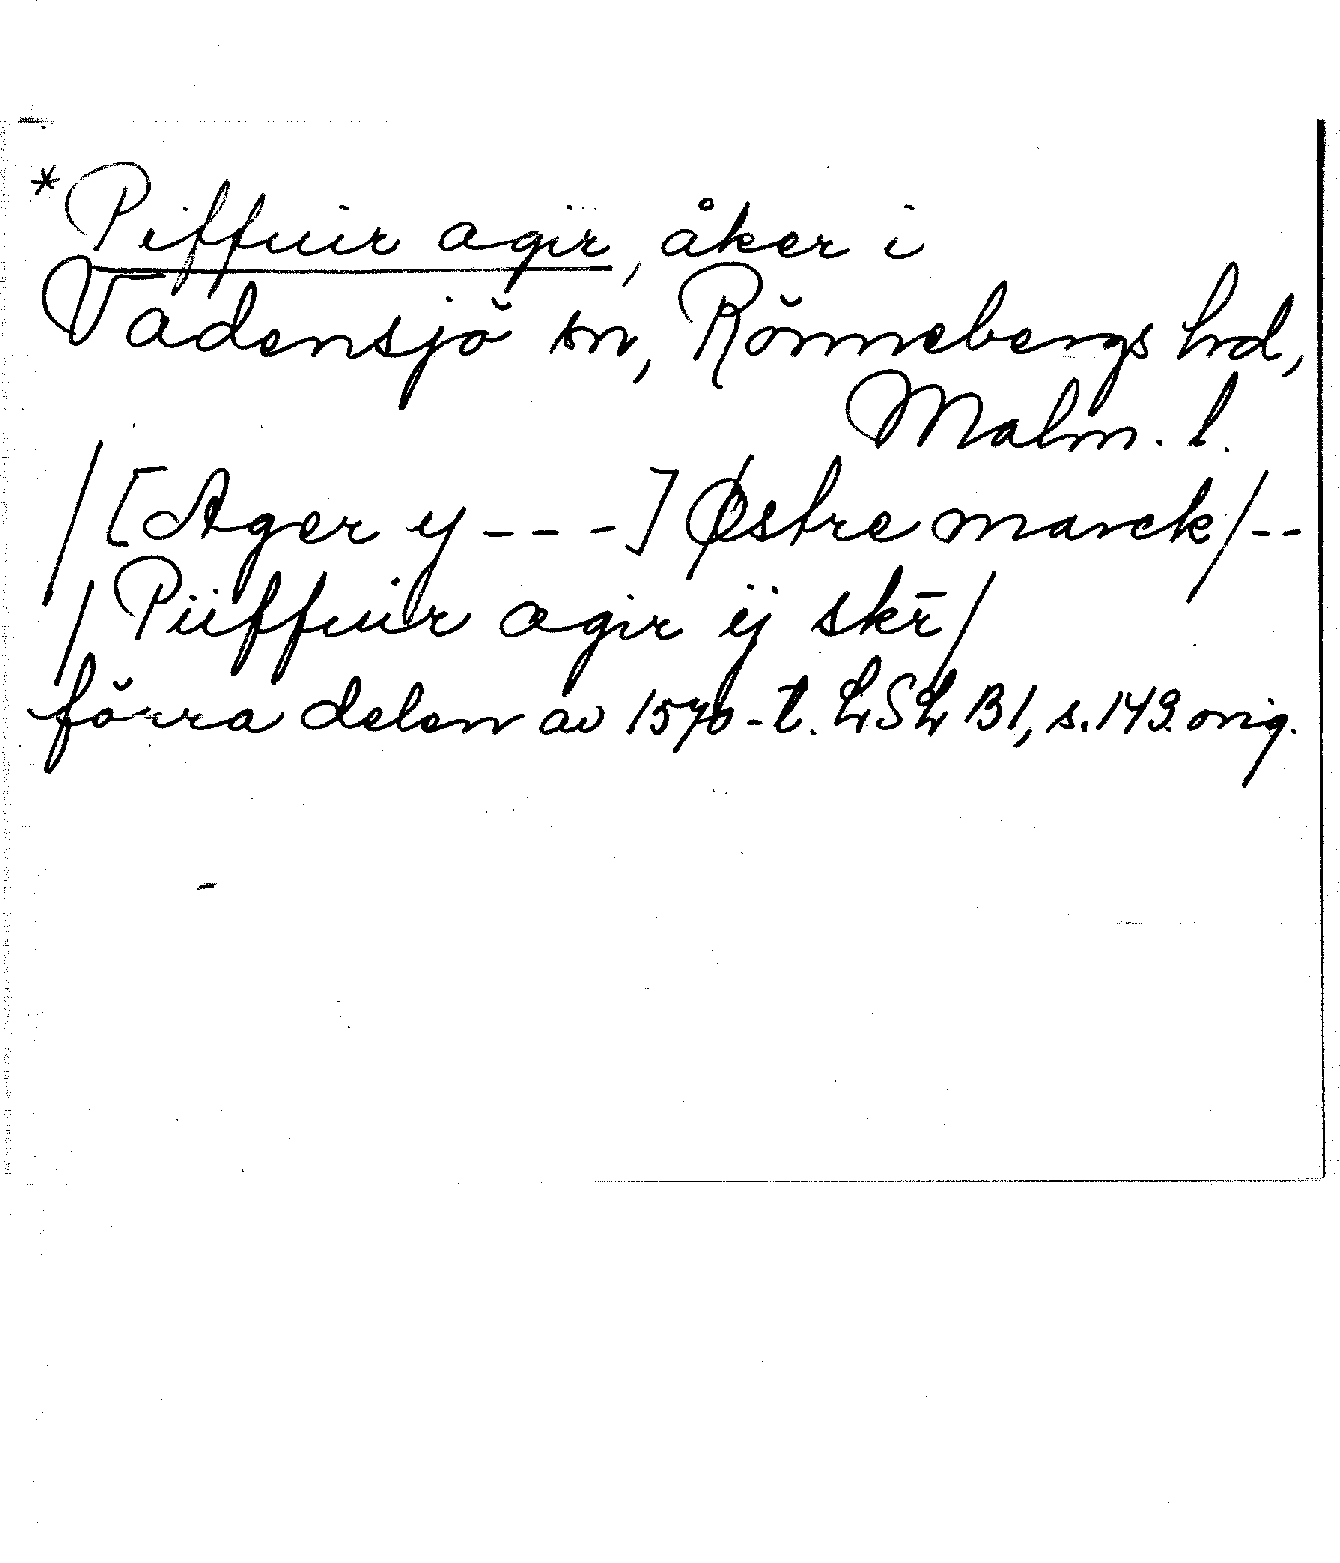 *Piffuir agir, åker i
Vadensjö sn, Rönnebergs hd,
Malm. l.
/[Ager y - - -] Østre marck/--
/Piiffuir agir ij skr̄/
förra delen av 1570-t. LSL B1, s.149. orig.